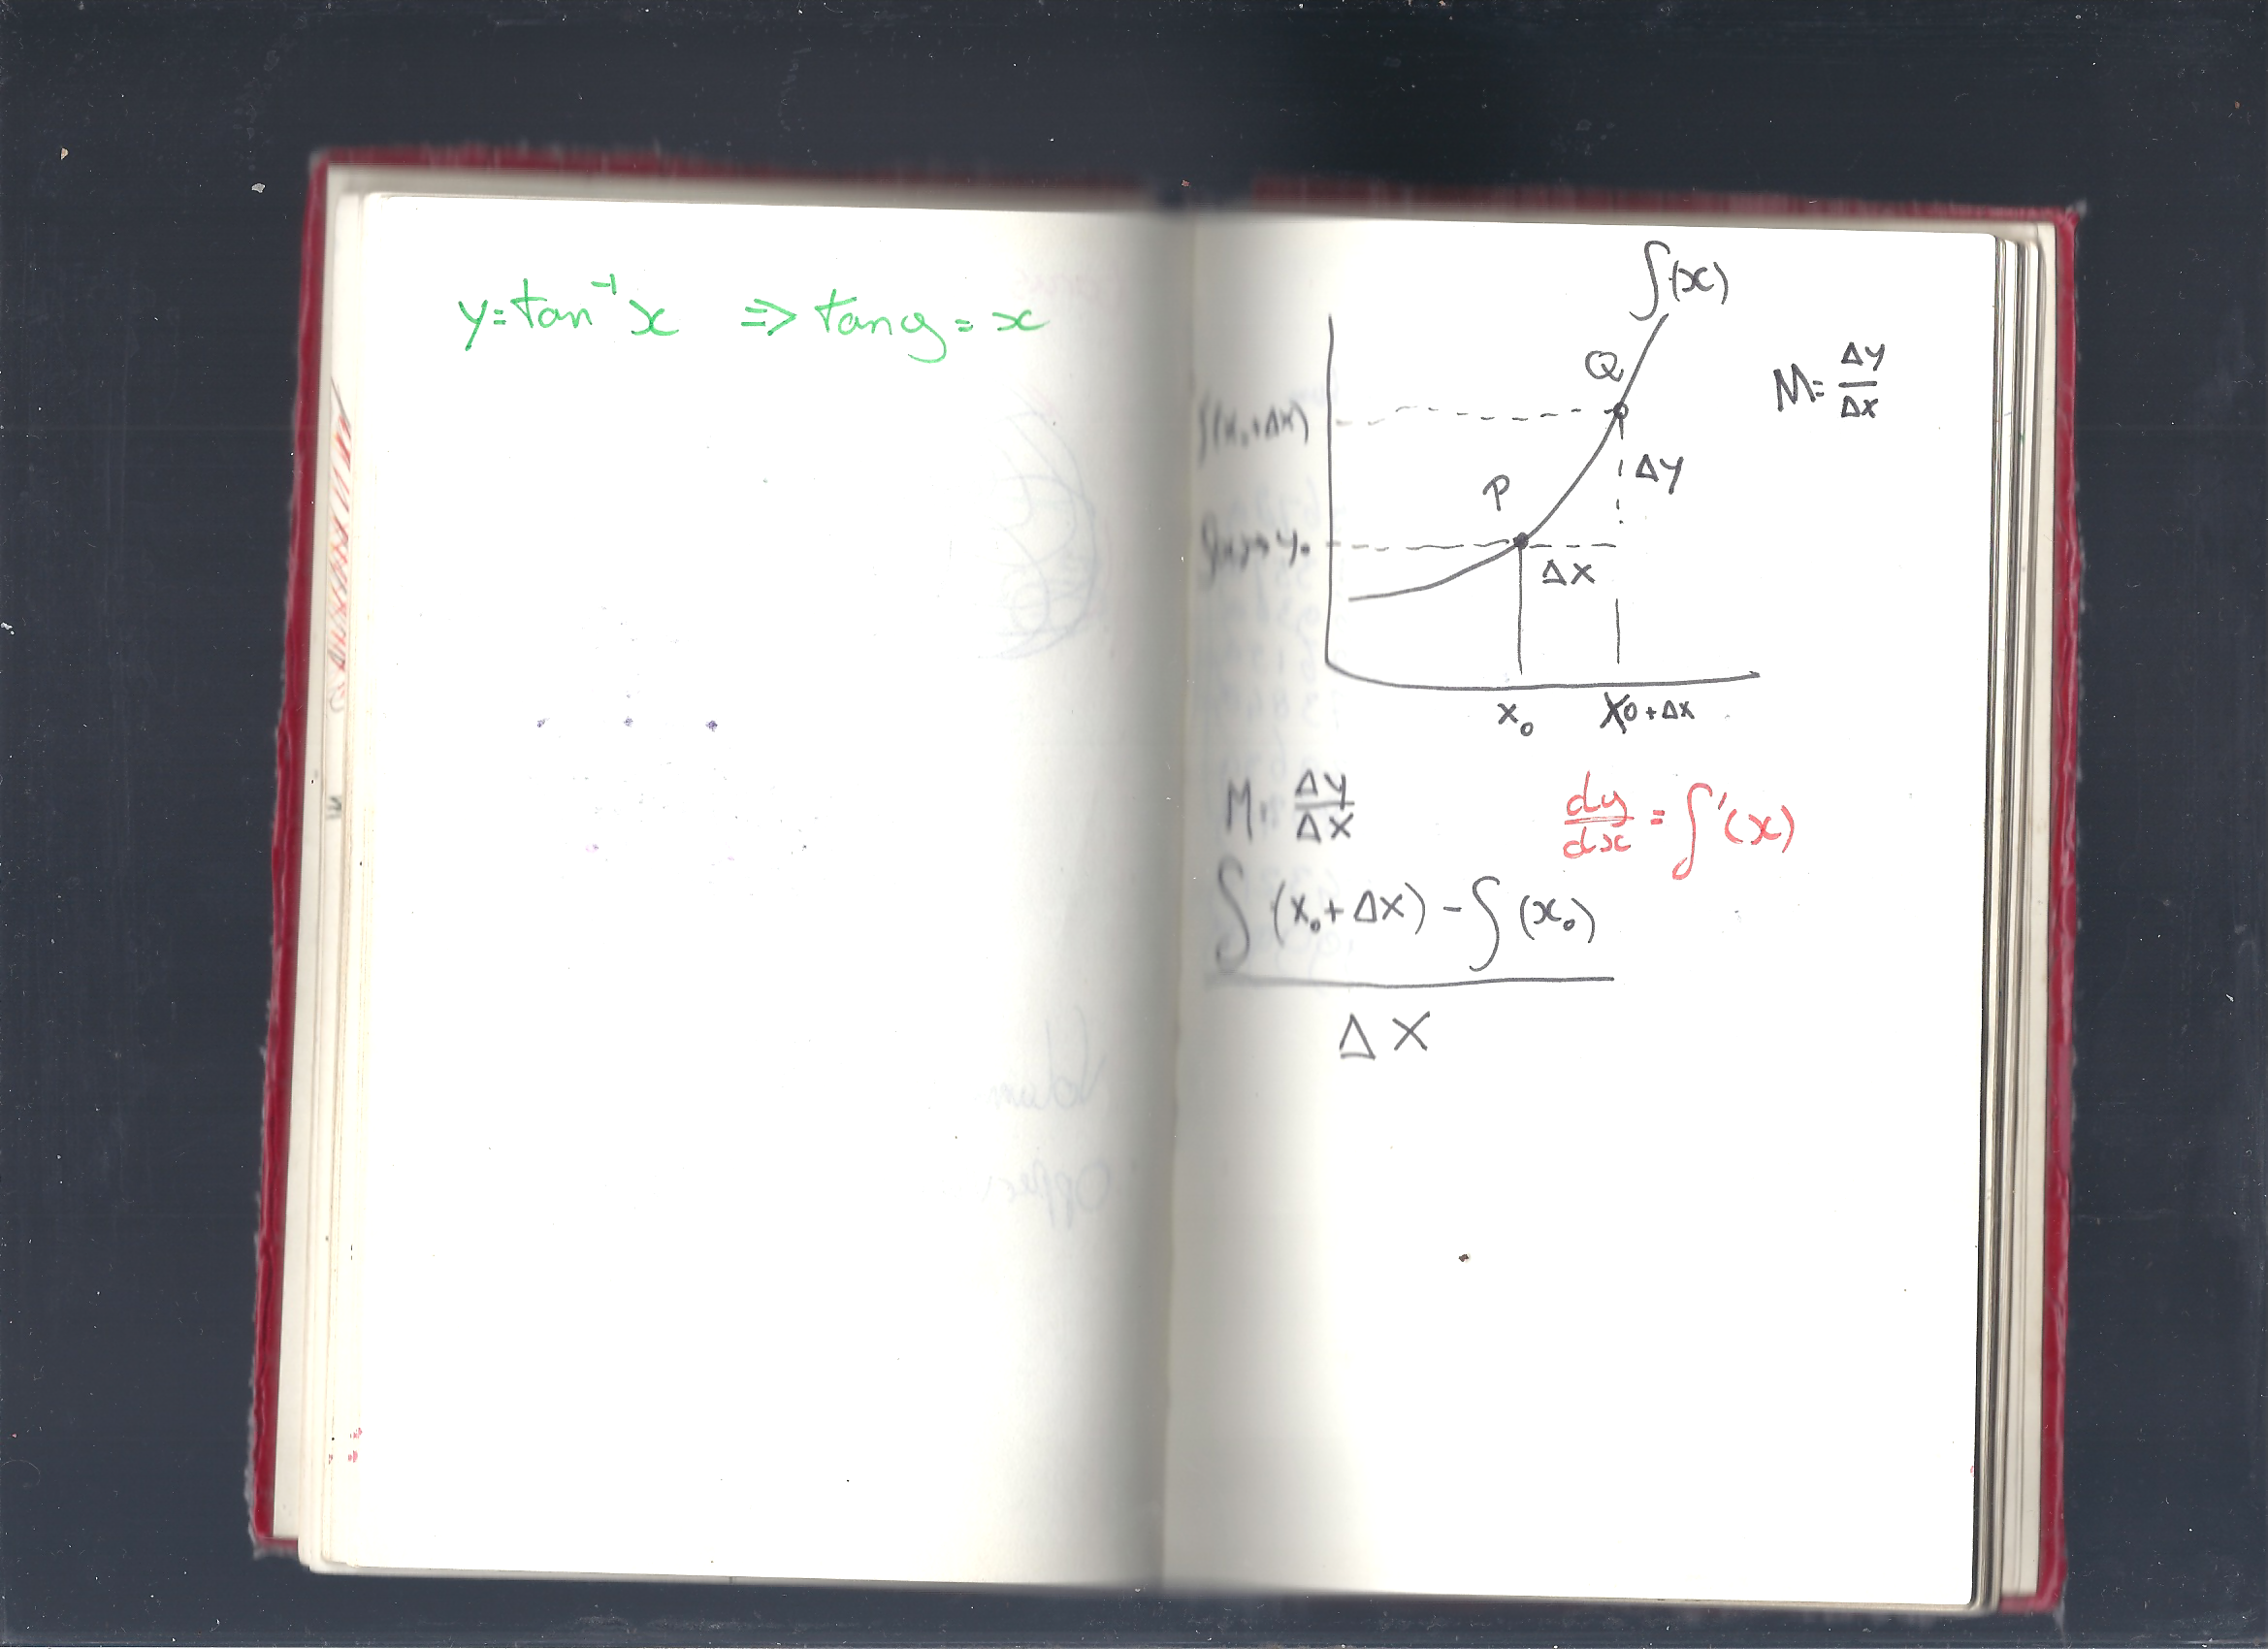 y=tan⁻¹x ⇒ tan y = x
f(x)
Q
M = Δy/Δx
f(x₀+Δx)
Δy
P
y₀
Δx
x₀ x₀+Δx
M = Δy/Δx
dy/dx = f'(x)
f(x₀+Δx) - f(x₀)
Δx